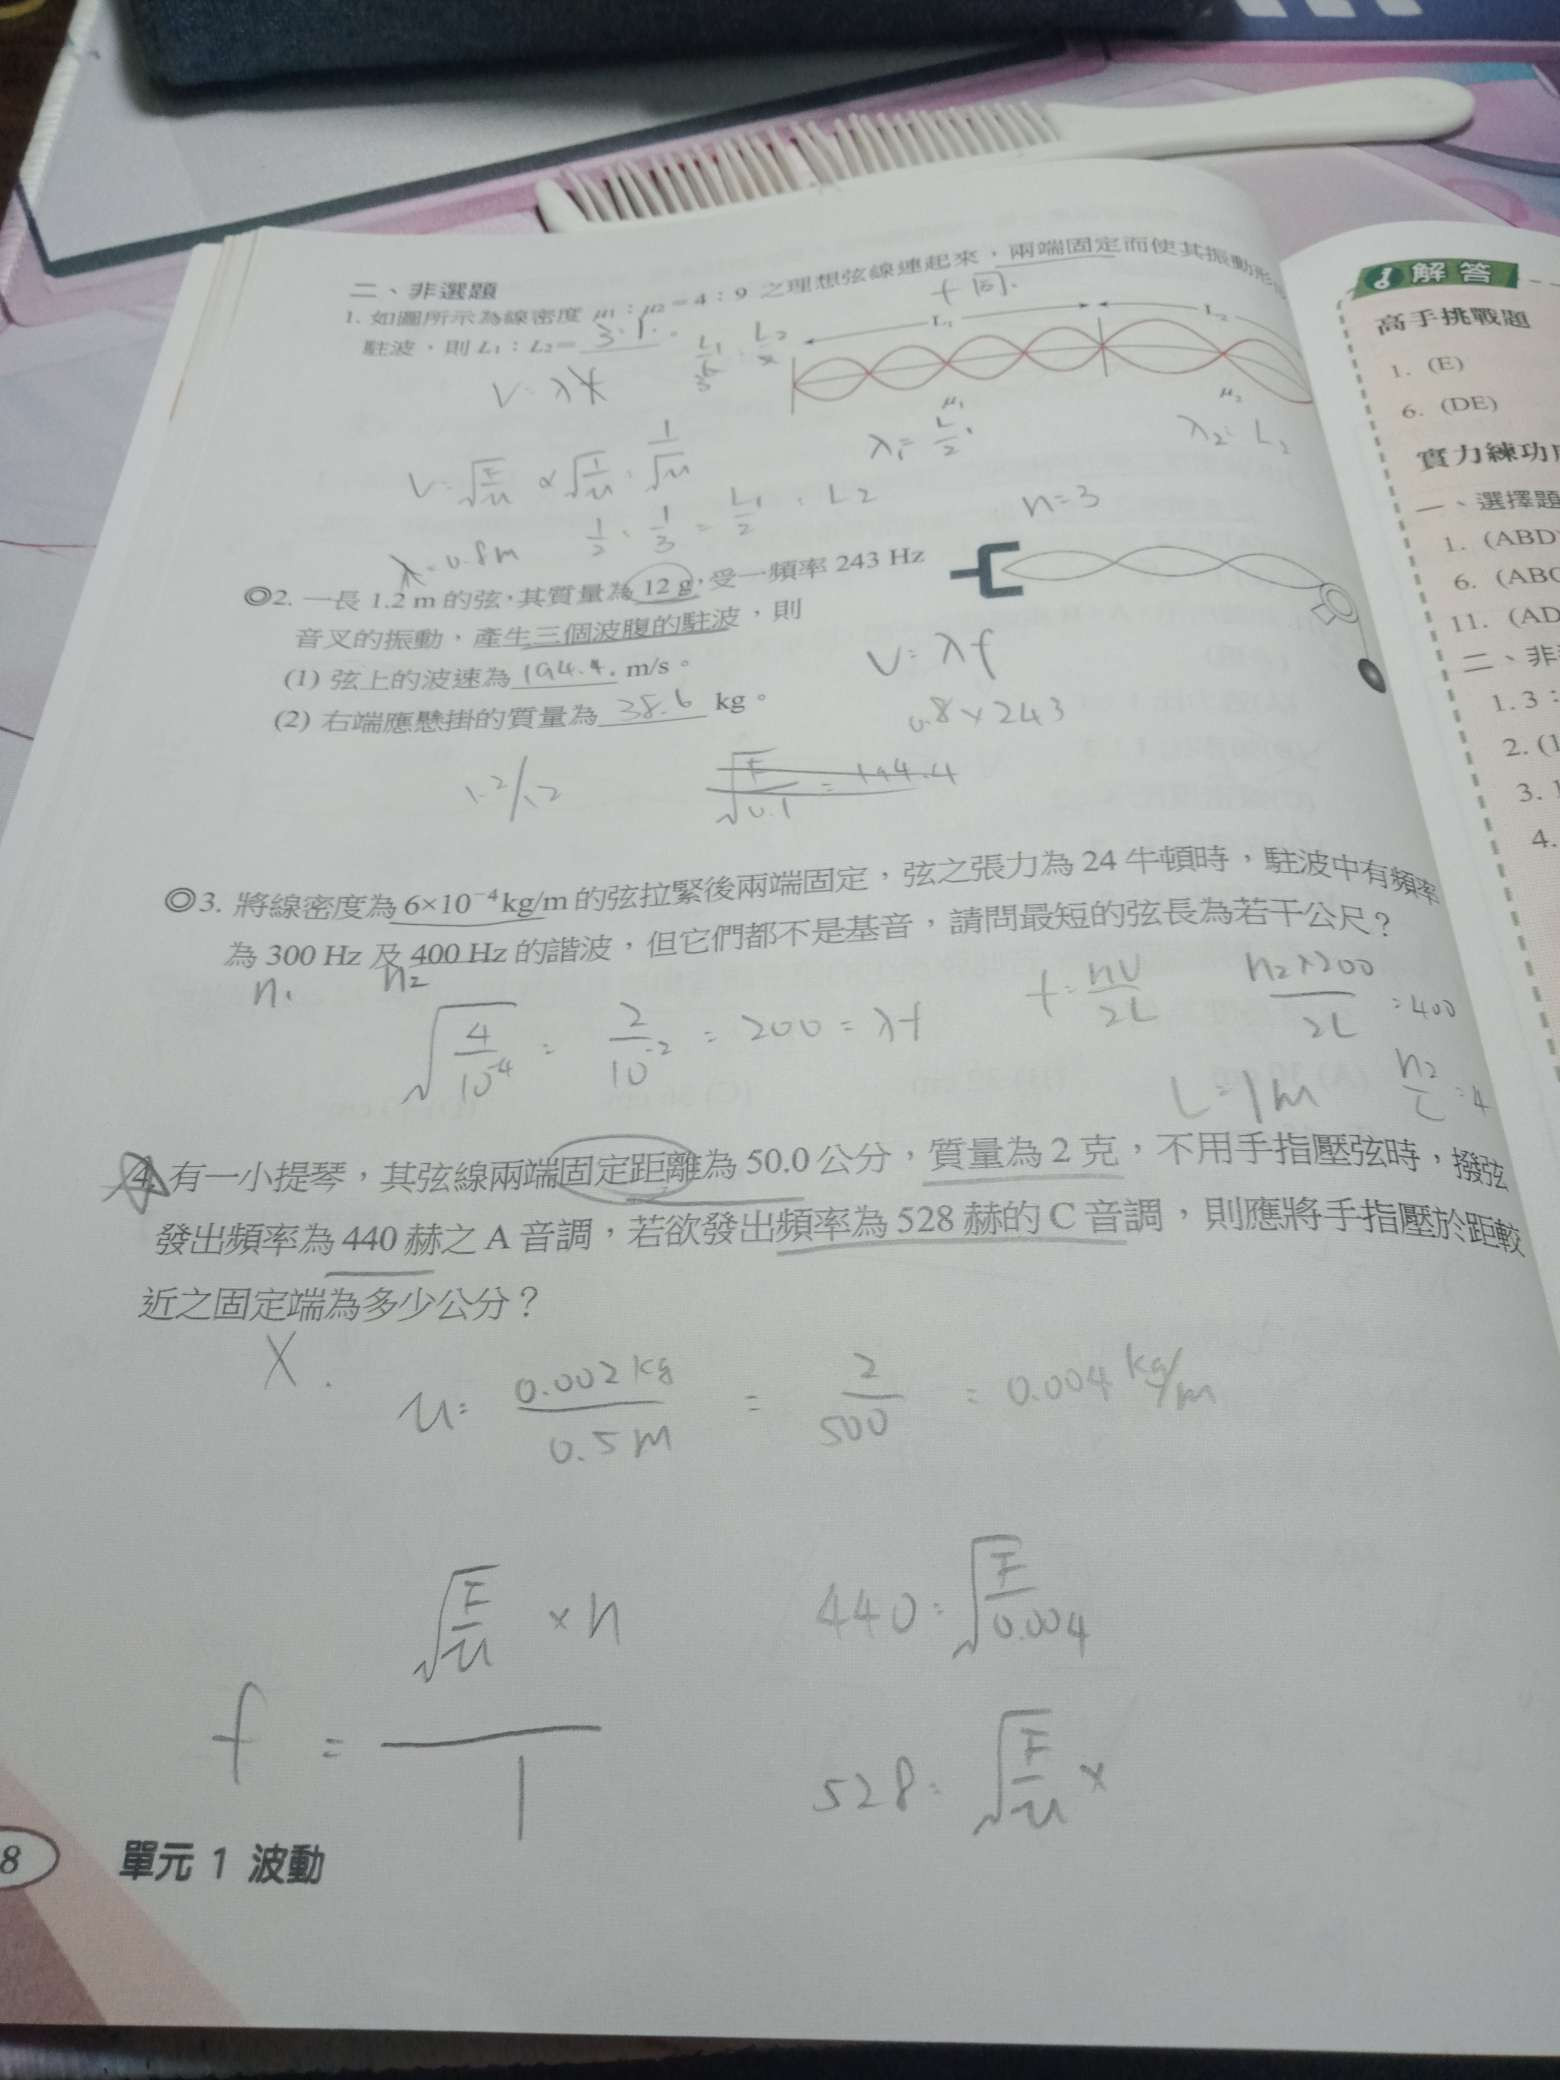 二、非選題
1. 如圖所示為線密度 μ₁:μ₂=4:9 之理想弦線連起來，兩端固定而使其振動形
f 同.
駐波，則 L₁:L₂= 3:1 。
L₁ L₂
V=λf
μ₁ μ₂
λ₁= L₁/2
λ₂= L₂
V=√(F/u) ∝ √(1/u) : 1/√u
1/2 : 1/3 = L₁/2 : L2
n=3
λ=0.8m
◎2. 一長 1.2 m 的弦，其質量為 12 g，受一頻率 243 Hz
音叉的振動，產生三個波腹的駐波，則
(1) 弦上的波速為 194.4. m/s。
(2) 右端應懸掛的質量為 38.6 kg。
V=λf
0.8×243
1.2/12
√(F/0.1) = 194.4
◎3. 將線密度為 6×10⁻⁴ kg/m 的弦拉緊後兩端固定，弦之張力為 24 牛頓時，駐波中有頻率
為 300 Hz 及 400 Hz 的諧波，但它們都不是基音，請問最短的弦長為若干公尺？
n₁ n₂
√(4/10⁻⁴) = 2/10⁻² = 200 = λf
f= nV/2L
n₂×200/2L = 400
L=1m
n₂/L = 4
4. 有一小提琴，其弦線兩端固定距離為 50.0 公分，質量為 2 克，不用手指壓弦時，撥弦
發出頻率為 440 赫之 A 音調，若欲發出頻率為 528 赫的 C 音調，則應將手指壓於距較
近之固定端為多少公分？
X.
u= 0.002kg/0.5m = 2/500 = 0.004 kg/m
f = √(F/u) ×n / 1
440= √(F/0.004)
528= √(F/u) ×
8 單元 1 波動
解答
高手挑戰題
1. (E)
6. (DE)
實力練功
一、選擇題
1. (ABD
6. (ABC
11. (AD
二、非
1. 3:
2. (1
3. 1
4.